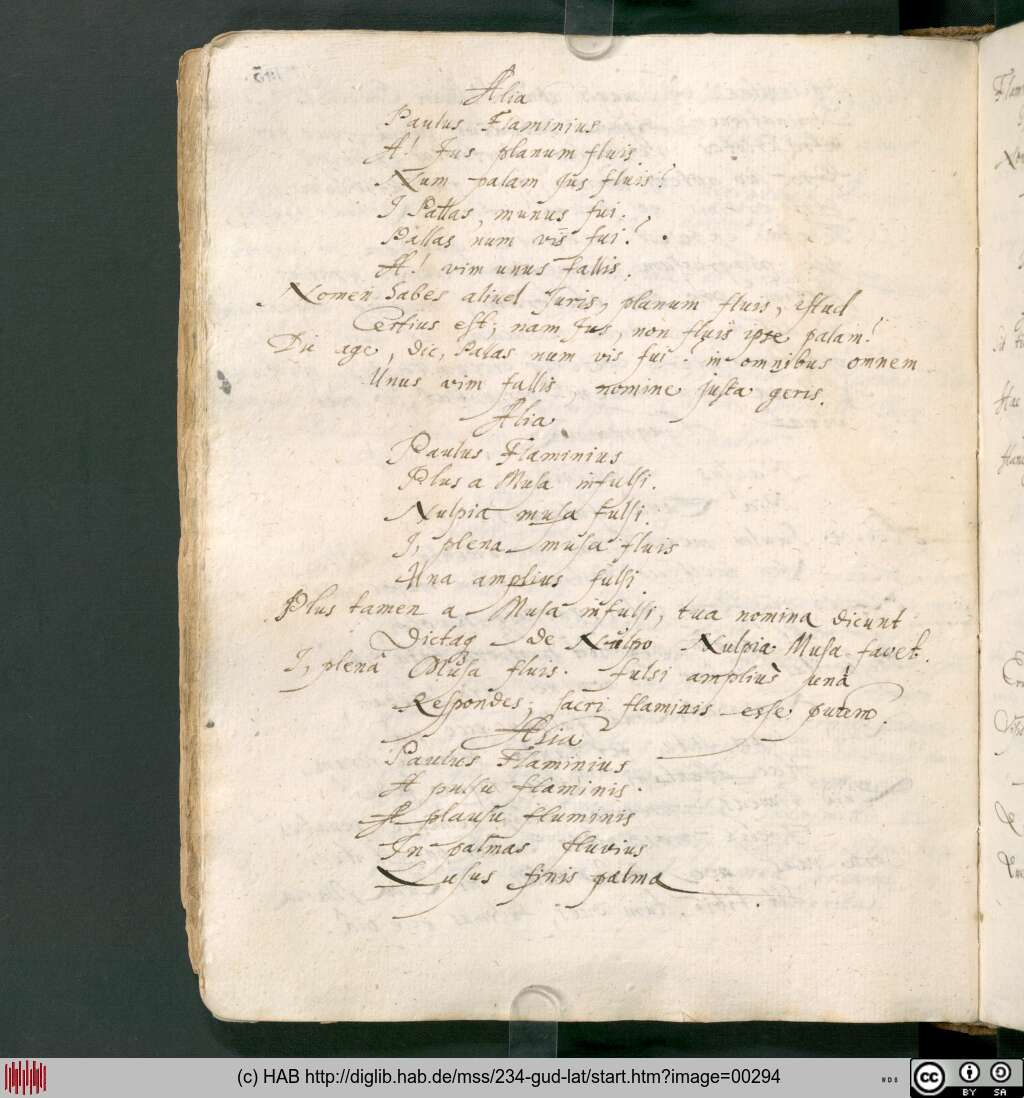 Alia
Paulus Flaminius
A! Jus planum fluis.
Num palam jus fluis?
I Pallas, munus fui.
Pallas num vis fui?
A! vim unus fallis.
Nomen habes aliud Juris, planum fluis, istud
Certius est; nam Jus, non fluis ipse palam?
Dic age, dic, Pallas num vis fui? in omnibus omnem
Unus vim fallis, nomine justa geris.
Alia
Paulus Flaminius
Plus a Musa influsi.
Nulpia musa fulsi.
I, plena musa fluis
Una amplius fulsi.
Plus tamen a Musa influsi, tua nomina dicunt
Dictaq de Nulpo Nulpia Musa favet.
I, plenâ Musa fluis. fulsi ampliùs unà
Respondes; sacri flaminis esse putem.
Alia
Paulus Flaminius
A pulsu flaminis.
A plausu fluminis
In palmas fluvius
Lusus finis palma.
(c) HAB http://diglib.hab.de/mss/234-gud-lat/start.htm?image=00294
cc BY SA